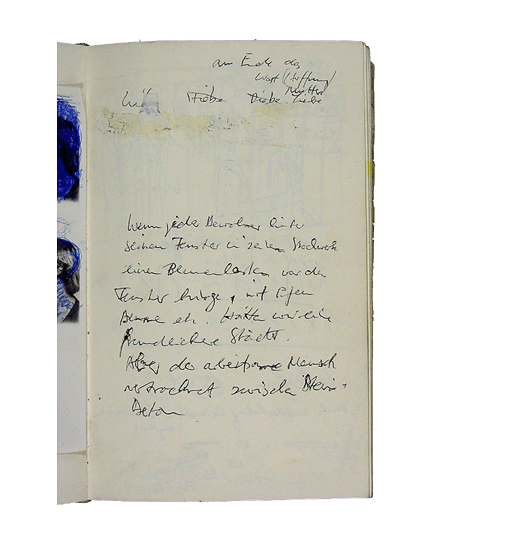 am Ende das
Wort (Hoffnung)
Mutter
Liebe Liebe Liebe
Wenn jeder Bewohner hinter
seinem Fenster in jedem Stockwerk
einen Blumenkasten vor das
Fenster hinge, mit
Blume etc. Hätten wir eine
freundlichere Stadt.
Aber der Mensch
vertrocknet zwischen Stein-
Beton